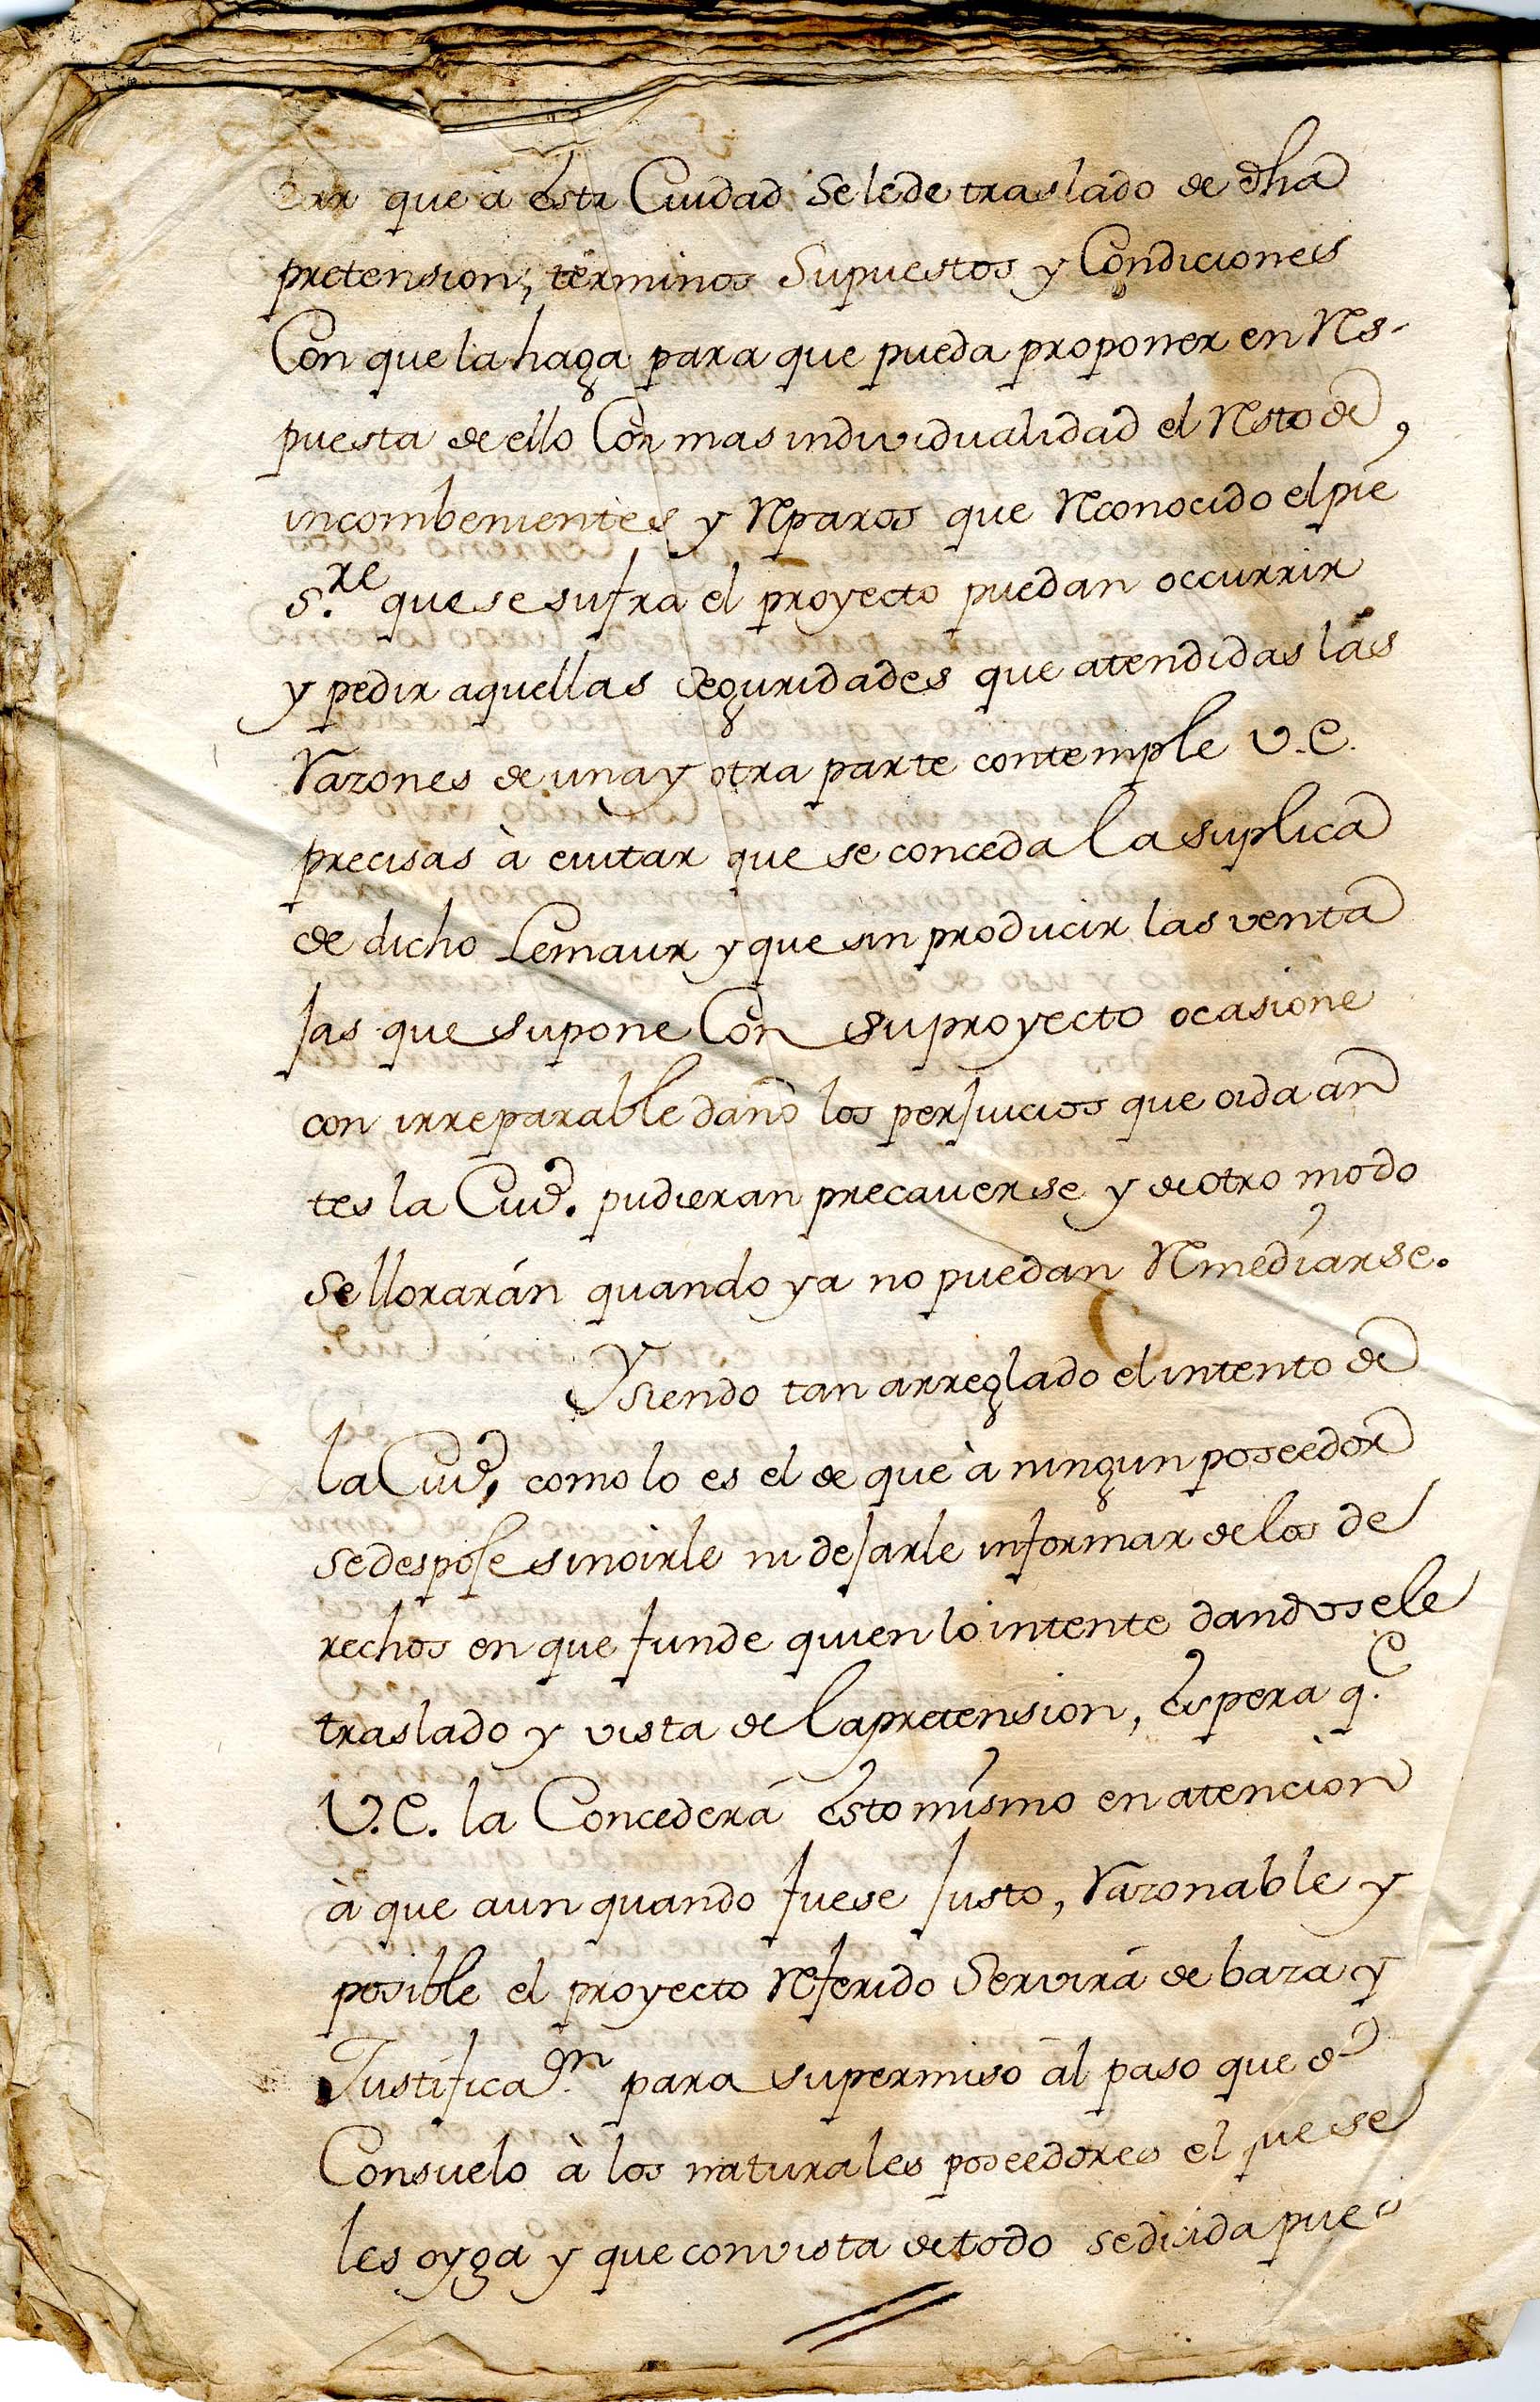 que à esta Ciudad se le de traslado de dha
pretension, terminos supuestos y Condiciones
Con que la haga para que pueda proponer en Res-
puesta de ello Con mas individualidad el Resto de
incombenientes y Reparos que Reconocido el pie
s.re que se sufra el proyecto puedan occurrir
y pedir aquellas seguridades que atendidas las
Razones de una y otra parte contemple V.E.
precisas à evitar que se conceda la suplica
de dicho Lemaur y que sin producir las venta
jas que supone Con su proyecto ocasione
con irreparable daño los perjuicios que oida an
tes la Ciud. pudieran precaverse y de otro modo
se llorarán quando ya no puedan Remediarse.
Y siendo tan arreglado el intento de
la Ciud, como lo es el de que à ningun poseedor
se despoje sin oirle ni dejarle informar de los de
rechos en que funde quien lo intente dandosele
traslado y vista de la pretension, espera q.e
V.E. la Concederá esto mismo en atencion
à que aun quando fuese justo, Razonable y
posible el proyecto Referido Servirá de baza y
Justifica.on para su permiso al paso que de
Consuelo à los naturales poseedores el que se
les oyga y que con vista de todo se decida pues